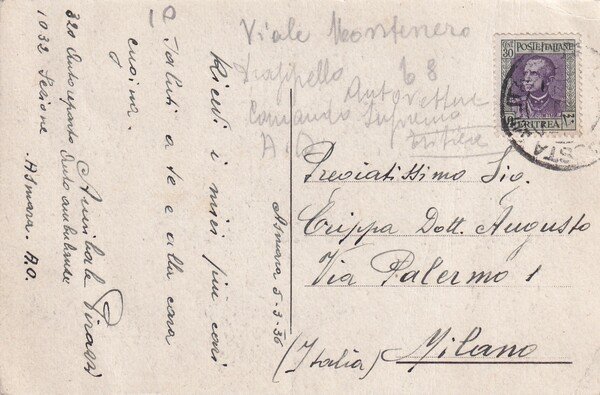 Viale Montenero
68
Autovetture
Comando Supremo
A.O. Eritrea
CENT. 30 POSTE ITALIANE
ERITREA
POSTA
Ricevi i miei più cari
saluti a te e alla cara
cugina.
Annibale
320 Autoreparto
Auto ambulanze
1032 Sezione
Asmara. A.O.
Asmara 5-3-36
Pregiatissimo Sig.
Crippa Dott. Augusto
Via Palermo 1
Milano
(Italia)